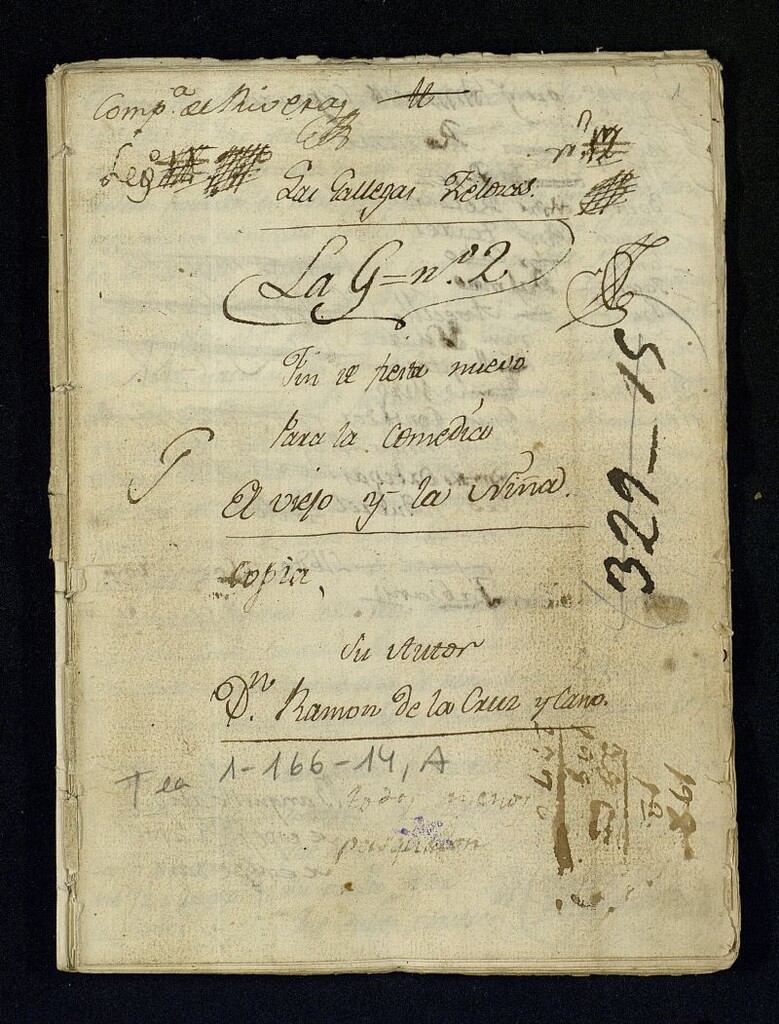 Comp.ª de Rivera
Leg.º nº 12
Las Gallegas Zelosas
La G=n.º 2
Fin de fiesta nuevo
Para la Comedia
El viejo y la Niña.
Copia,
Su Autor
D.n Ramon de la Cruz y Cano.
329-15
Tea 1-166-14, A
todos menos